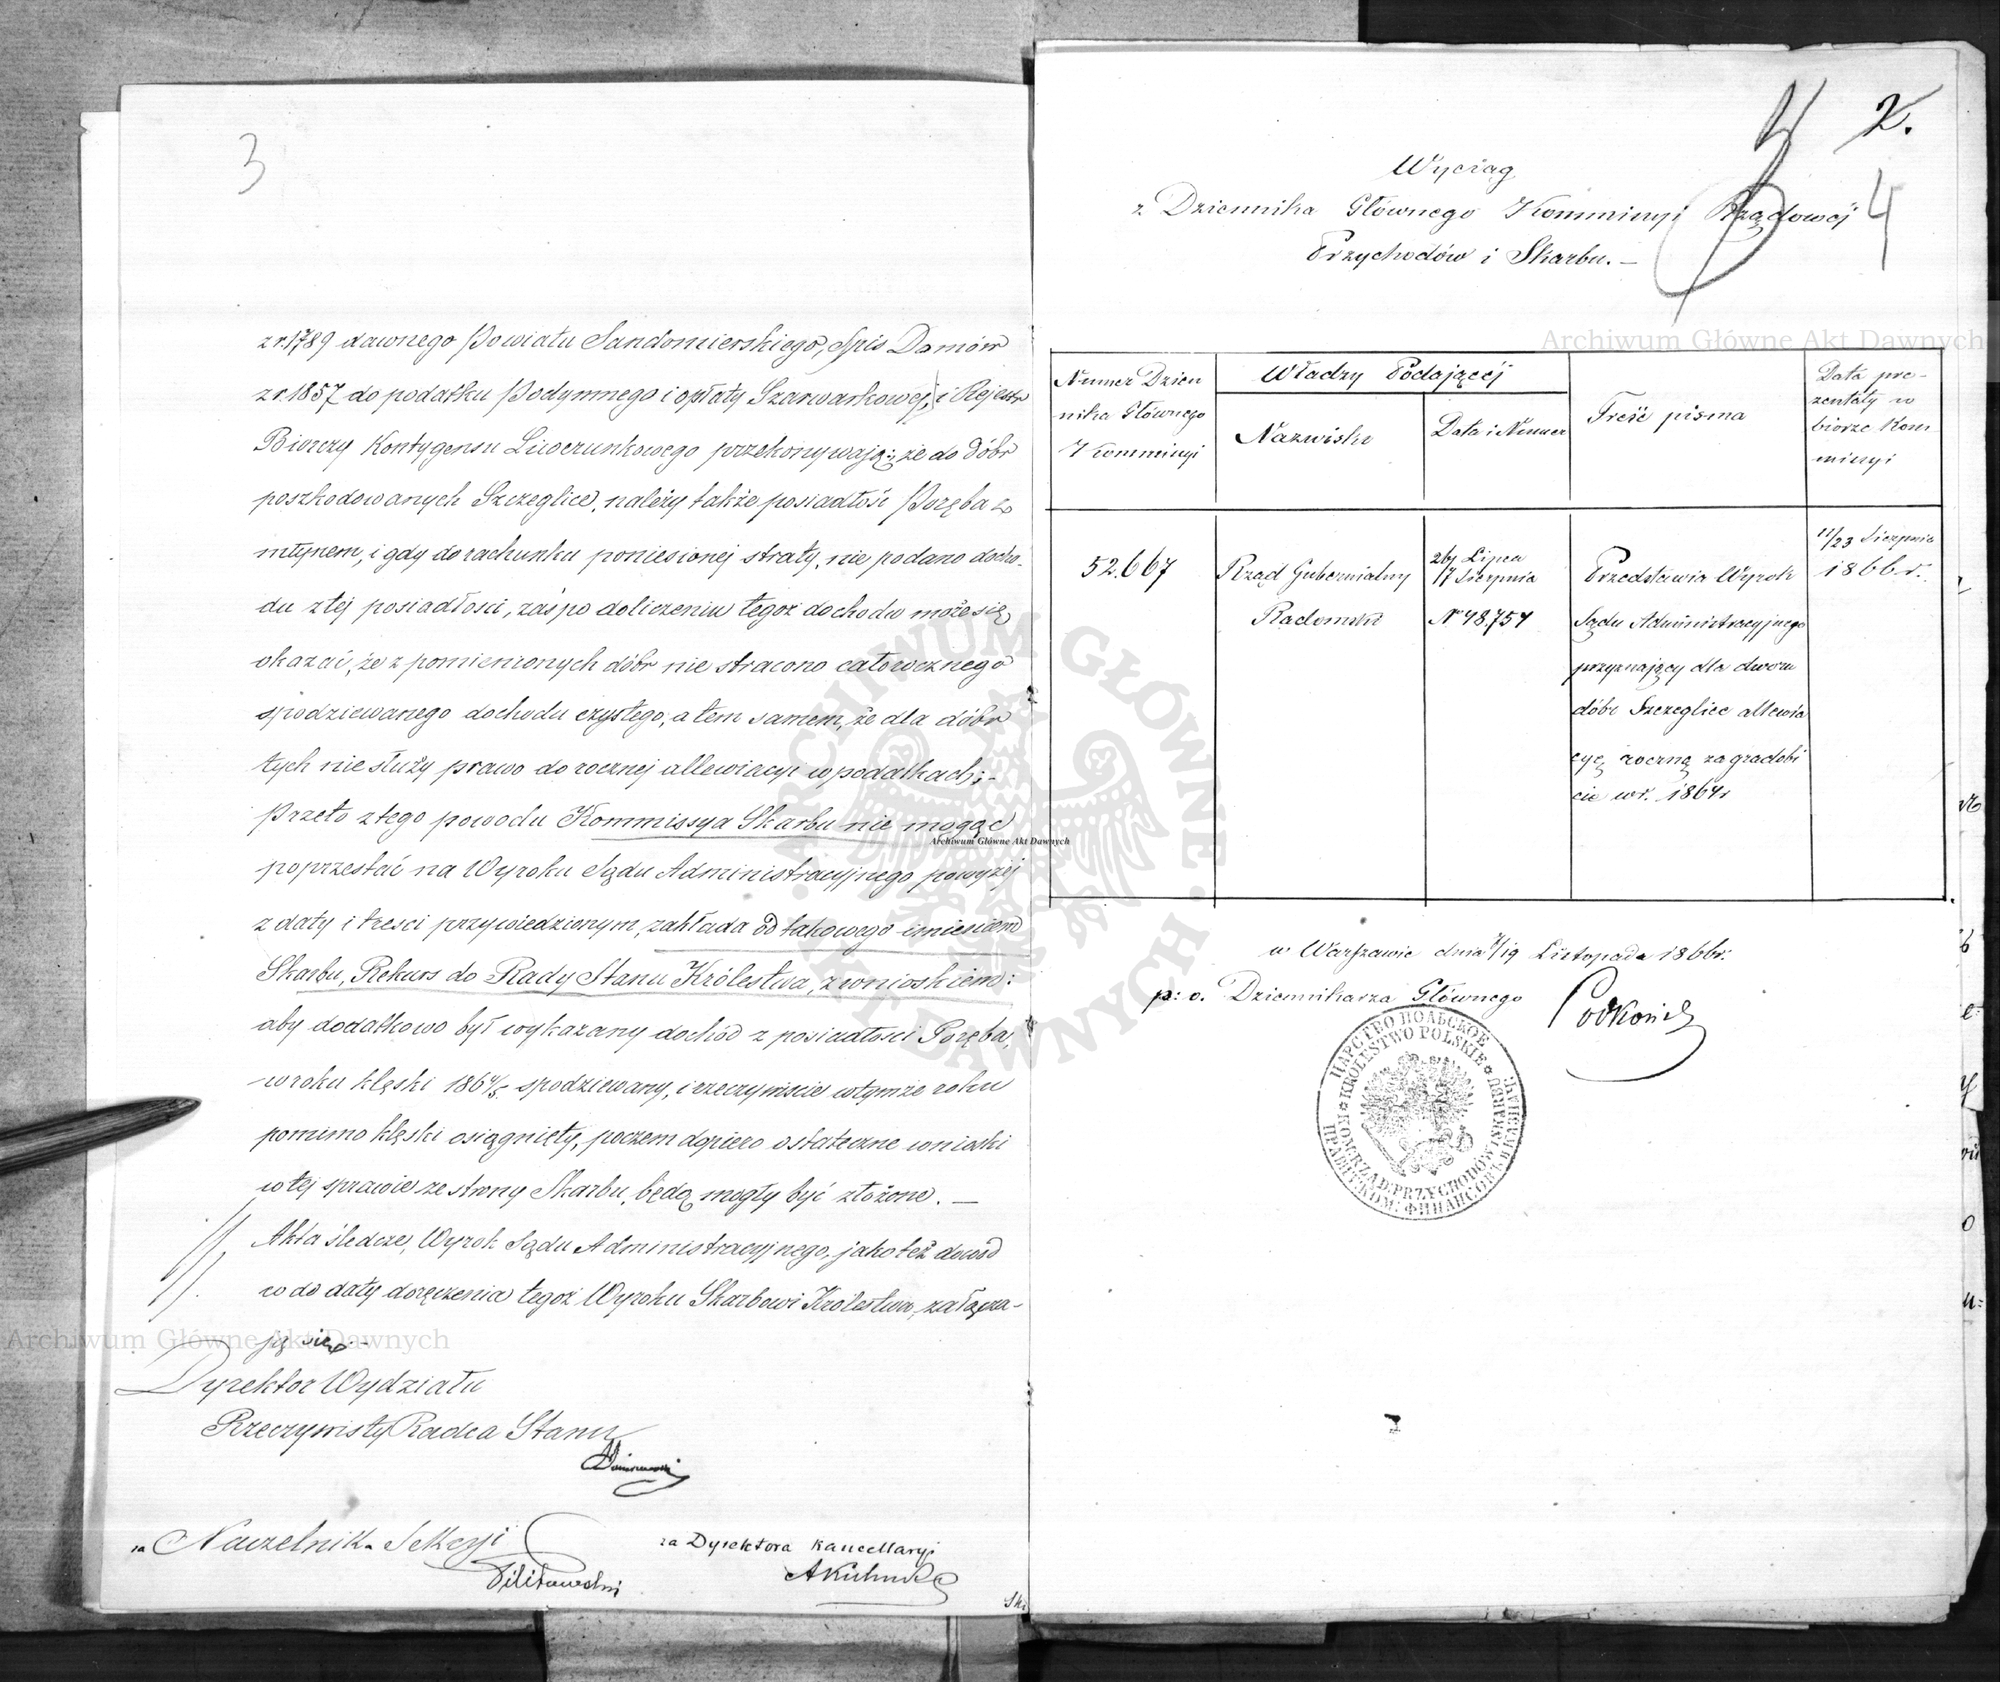 3
z r. 1789 dawnego Powiatu Sandomierskiego, Spis Domów
z r. 1857 do podatku Podymnego i opłaty Szarwarkowej, i Rejestr
Bierczy Kontygensu Liwerunkowego przekonywają; że do Dóbr
poszkodowanych Szczeglice, należy także posiadłość Poręba z
młynem, i gdy do rachunku poniesionej straty, nie podano docho-
du z tej posiadłości, zaś po doliczeniu tegoż dochodu może się
okazać, że z pomienionych dóbr nie stracono całorocznego
spodziewanego dochodu czystego, a tem samem, że dla dóbr
tych nie służy prawo do rocznej allewiacyi w podatkach;-
Przeto z tego powodu Kommissya Skarbu nie mogąc
poprzestać na Wyroku Sądu Administracyjnego powyżej
z daty i treści przywiedzionym, zakłada od takowego imieniem
Skarbu, Rekurs do Rady Stanu Królestwa, z wnioskiem:
aby dodatkowo był wykazany dochód z posiadłości Poręba,
w roku klęski 1864/5 spodziewany, i rzeczywiście w tymże roku
pomimo klęski osiągnięty, poczem dopiero ostateczne wnioski
w tej sprawie ze strony Skarbu, będą mogły być złożone. —
Akta śledcze, Wyrok Sądu Administracyjnego, jako też dowód
co do daty doręczenia tegoż Wyroku Skarbowi Królestwa, załącza-
ją się.-
Dyrektor Wydziału
Rzeczywisty Radca Stanu
za Naczelnika Sekcyi
za Dyrektora Kancellaryi
2.
4
Wyciąg
z Dziennika Głównego Kommisyi Rządowéj
Przychodów i Skarbu.—
Numer Dzien
nika Głównego
Kommisyi
Władzy Podającéj
Nazwisko
Data i Numer
Treść pisma
Data pre-
zentaty w
biórze Kom
misyi
52.667
Rząd Gubernialny
Radomski
26 Lipca
/7 Sierpnia
N 48.754
Przedstawia Wyrok
Sądu Administracyjnego
przyznający dla dworu
dóbr Szczeglice allewia
cyę roczną za gradobi
cie w r. 1864r
11/23 Sierpnia
1866r.
w Warszawie dnia 7/19 Listopada 1866r.
p: o. Dziennikarza Głównego
ЦАРСТВО ПОЛЬСКОЕ
KRÓLESTWO POLSKIE
KOM: RZĄD: PRZYCHODÓW I SKARBU
ПРАВИТ: КОМ: ФИНАНСОВЪ
Archiwum Główne Akt Dawnych
Archiwum Główne Akt Dawnych
Archiwum Główne Akt Dawnych
ARCHIWUM GŁÓWNE AKT DAWNYCH